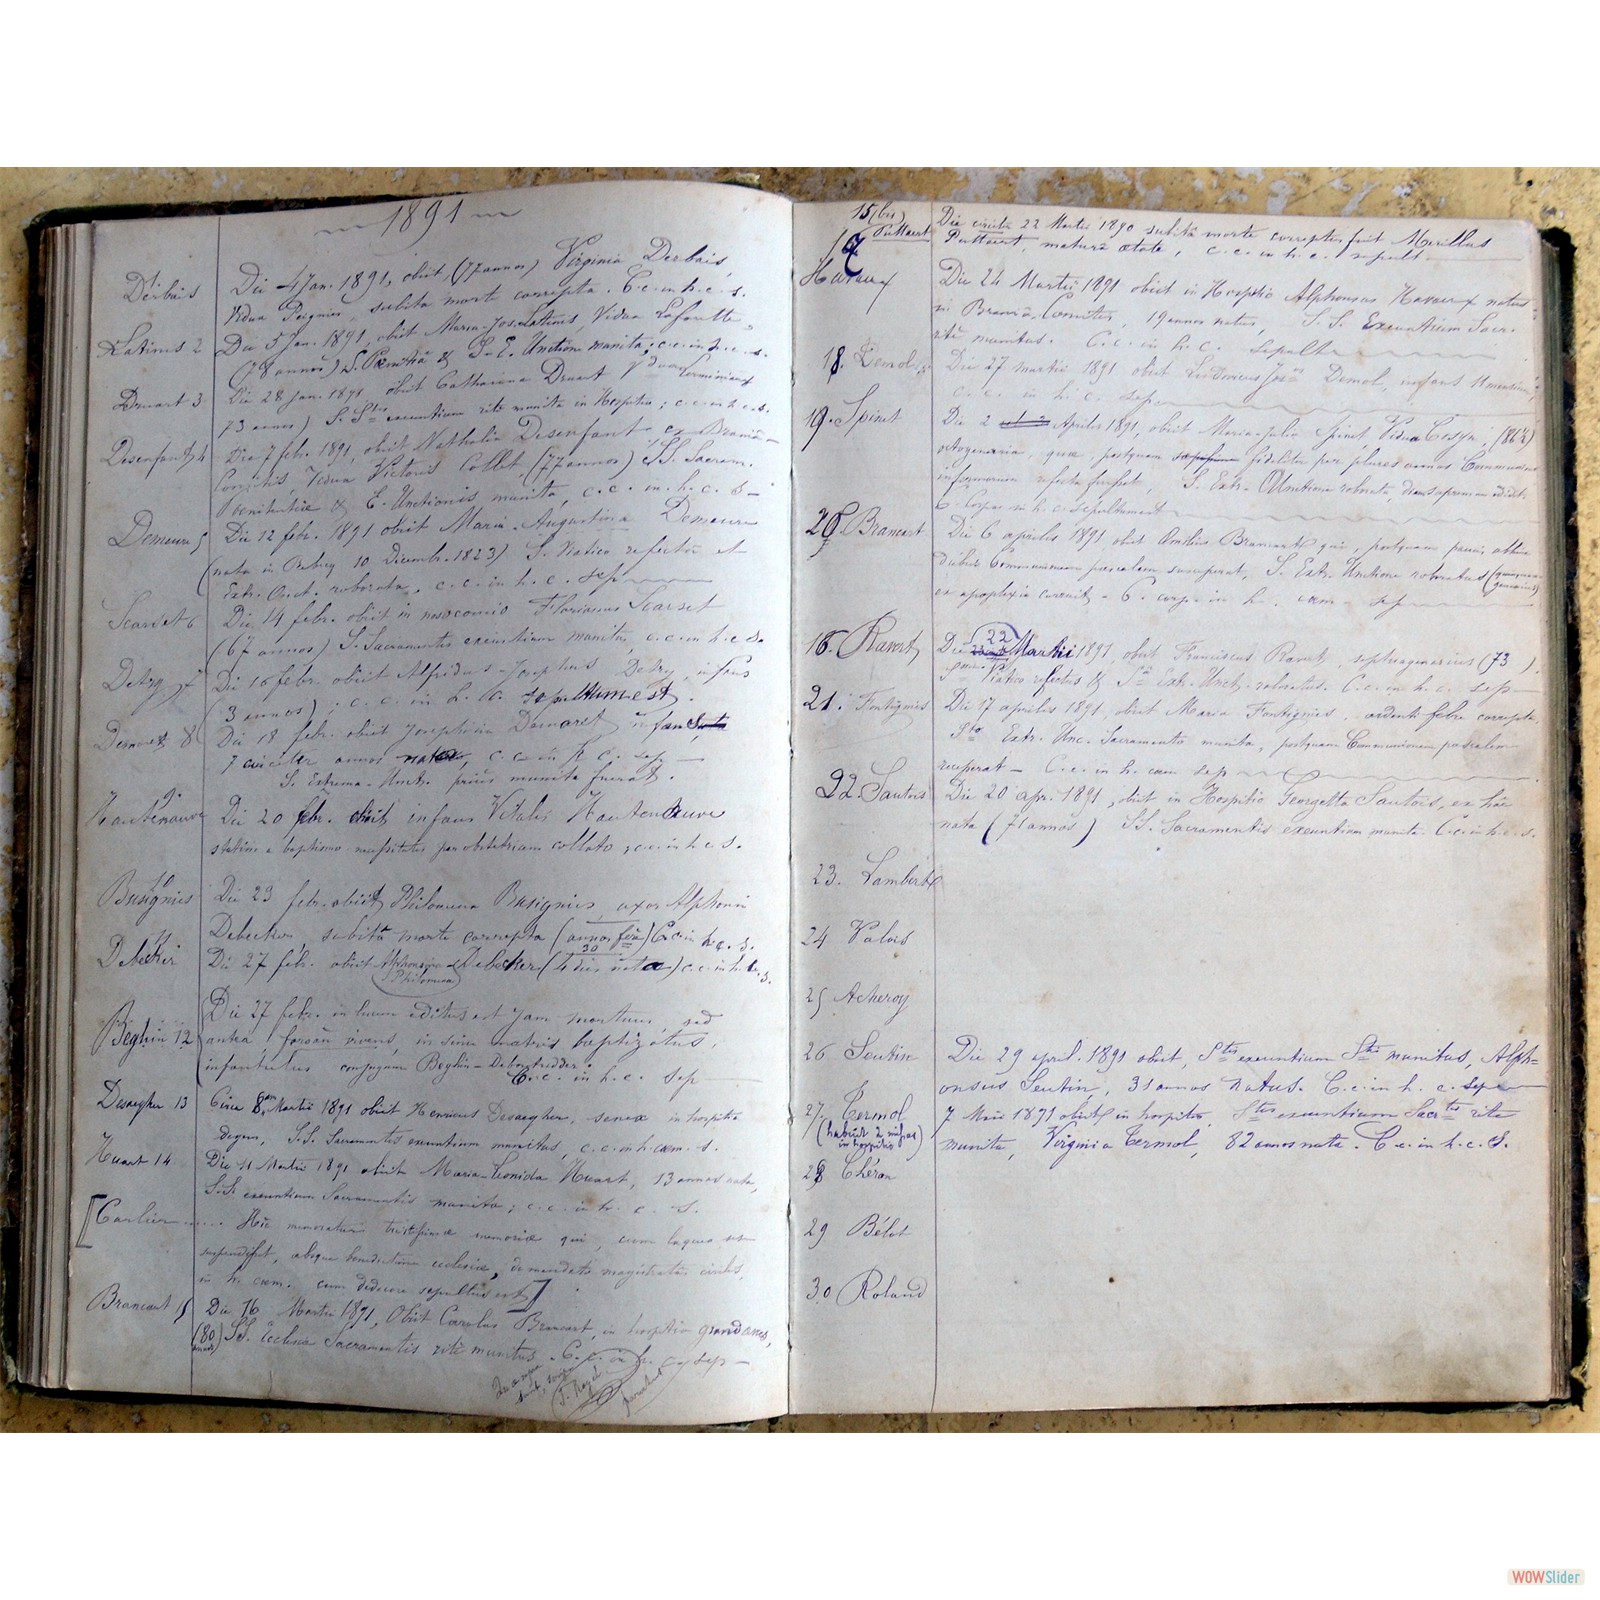 1891
Derbais
Die 4 Jan. 1891, obiit (77 annos) Virginia Derbais,
Vidua Peignies, subita morte correpta. C. c. in h. c. s.
Latinis 2
Die 5 Jan. 1891, obiit Maria-Jos. Latinis, Vidua Laforette
(78 annos) S. Pœnitentiâ & S. E. Unctione munita; c. c. in h. c. s.
Druart 3
Die 28 jan. 1891 obiit Catharina Druart Vidua
73 annos) S. Stis exeuntium rite munita in Hospitio; c. c. in h. c. s.
Desenfant 4
Die 7 febr. 1891, obiit Nathalia Desenfant ex Braniâ-
Comitis, Vidua Victoris Collet (77 annos) SS. Sacram.
Pœnitentiæ & E. Unctionis munita, c. c. in h. c. s-
Demeure 5
Die 12 febr. 1891 obiit Maria-Augustina Demeure
(nata in 10 Decembr. 1823) S. Viatico refecta et
Extr. Unct. roborata, c. c. in h. c. sep
Scarset 6
Die 14 febr. obiit in nosocomio Florianus Scarset
(67 annos) S. Sacramentis exeuntium munitus, c. c. in h. c. s.
Detry 7
Die 16 febr. obiit Alfridus-Josephus Detry, infans
(3 annos); c. c. in h. c. sepultum est.
Demaret 8
Die 18 febr. obiit Josephina Demaret infans
7 circiter annos nata, c. c. in h. c. sep
S. Extrema-Unct. prius munita fuerat.
9.
Hautenauve
Die 20 febr. obiit infans Vitalis Hautenauve
statim a baptismo necessitatis per obstetricem collato; c. c. in h. c. s.
10
Busignies
Die 23 febr. obiit Philomena Busignies, uxor Alphonsi
Debecker subitâ morte correpta (annos ferè 30) C. c. in h. c. s.
11
Debecker
Die 27 febr. obiit Alphonsina Debecker (4 dies nata) c. c. in h. c. s.
Philomena
Beghin 12
Die 27 febr. in lucem editus est jam mortuus, sed
antea forsan vivens, in sinu matris baptizatus,
infantulus conjugum Beghin-
C. c. in h. c. sep
Desaegher 13
Circa 8am Martii 1891 obiit Henricus Desaegher, senex in hospitio
degens, S.S. Sacramentis exeuntium munitus, c. c. in h. cœm. s.
Huart 14
Die 11 Martii 1891 obiit Maria-Leonida Huart, 13 annos nata,
S.S. exeuntium Sacramentis munita; c. c. in h. c. s.
[Carlier ..... Hic memoratur tristissimæ memoriæ qui, cum laqueo se
suspendisset, absque benedictione ecclesiæ, de mandato magistratûs civilis,
in h. cœm. cum dedecore sepultus est]
Brancart 15
Die 16 Martii 1891, Obiit Carolus Brancart, in hospitio
(80 annos) SS. Ecclesiæ Sacramentis rite munitus. C. c. in h. c. sep
15 (bis)
Puttaert
Die circiter 22 Martii 1890 subitâ morte correptus fuit
Puttaert, maturâ ætate, c. c. in h. c. sepult
17
Havaux
Die 24 Martii 1891 obiit in Hospitio Alphonsus Havaux natus
in Braniâ-Comitis, 19 annos natus, S. S. Exeuntium Sacr.
rite munitus. C. c. in h. c. sepult
18. Demol
Die 27 martii 1891 obiit Ludovicus Josus Demol, infans 11 mensium,
c. c. in h. c. sep
19. Spinet
Die 2 Aprilis 1891, obiit Maria-Julia Spinet, Vidua Cosyn, (86½)
octogenaria, quæ, postquam fideliter per plures annos Communione
infirmorum refecta fuisset, S. Extr. Unctione roborata, diem supremum edidit.
C. Corpus in h. c. sepultum est
20. Brancart
Die 6 aprilis 1891 obiit Brancart qui, postquam paucis abhinc
diebus Communionem paschalem susceperat, S. Extr. Unctione roboratus
ex apoplexia - C. corp. in h. cœm - sep
16. Ravet
Die 22 Martii 1891, obiit Franciscus Ravet septuagenarius (73).
Viatico refectus & S. Extr. Unct. roboratus. C. c. in h. c. sep
21. Fontignies
Die 17 aprilis 1891. obiit Maria Fontignies, ardenti febre correpta,
Sto Extr. Unc. Sacramento munita, postquam Communionem paschalem
receperat - C. c. in h. cœm sep
22. Sautois
Die 20 apr. 1891, obiit in Hospitio Georgetta Sautois, ex hâc
nata (71 annos) SS. Sacramentis exeuntium munita. C. c. in h. c. s.
23. Lambert
24 Valois
25 Acheroy
26 Seutin
Die 29 april. 1891 obiit, Stis exeuntium Stis munitus, Alph-
onsus Seutin, 31 annos natus. C. c. in h. c. sep
27. Termol
(habuit 2 infos in hospitio)
7 Maii 1891 obiit in hospitio, Stis exeuntium Sacrtis rite
munita, Virginia Termol, 82 annos nata. C. c. in h. c. S.
28 Théran
29 Bélot
30 Roland
WOWSlider